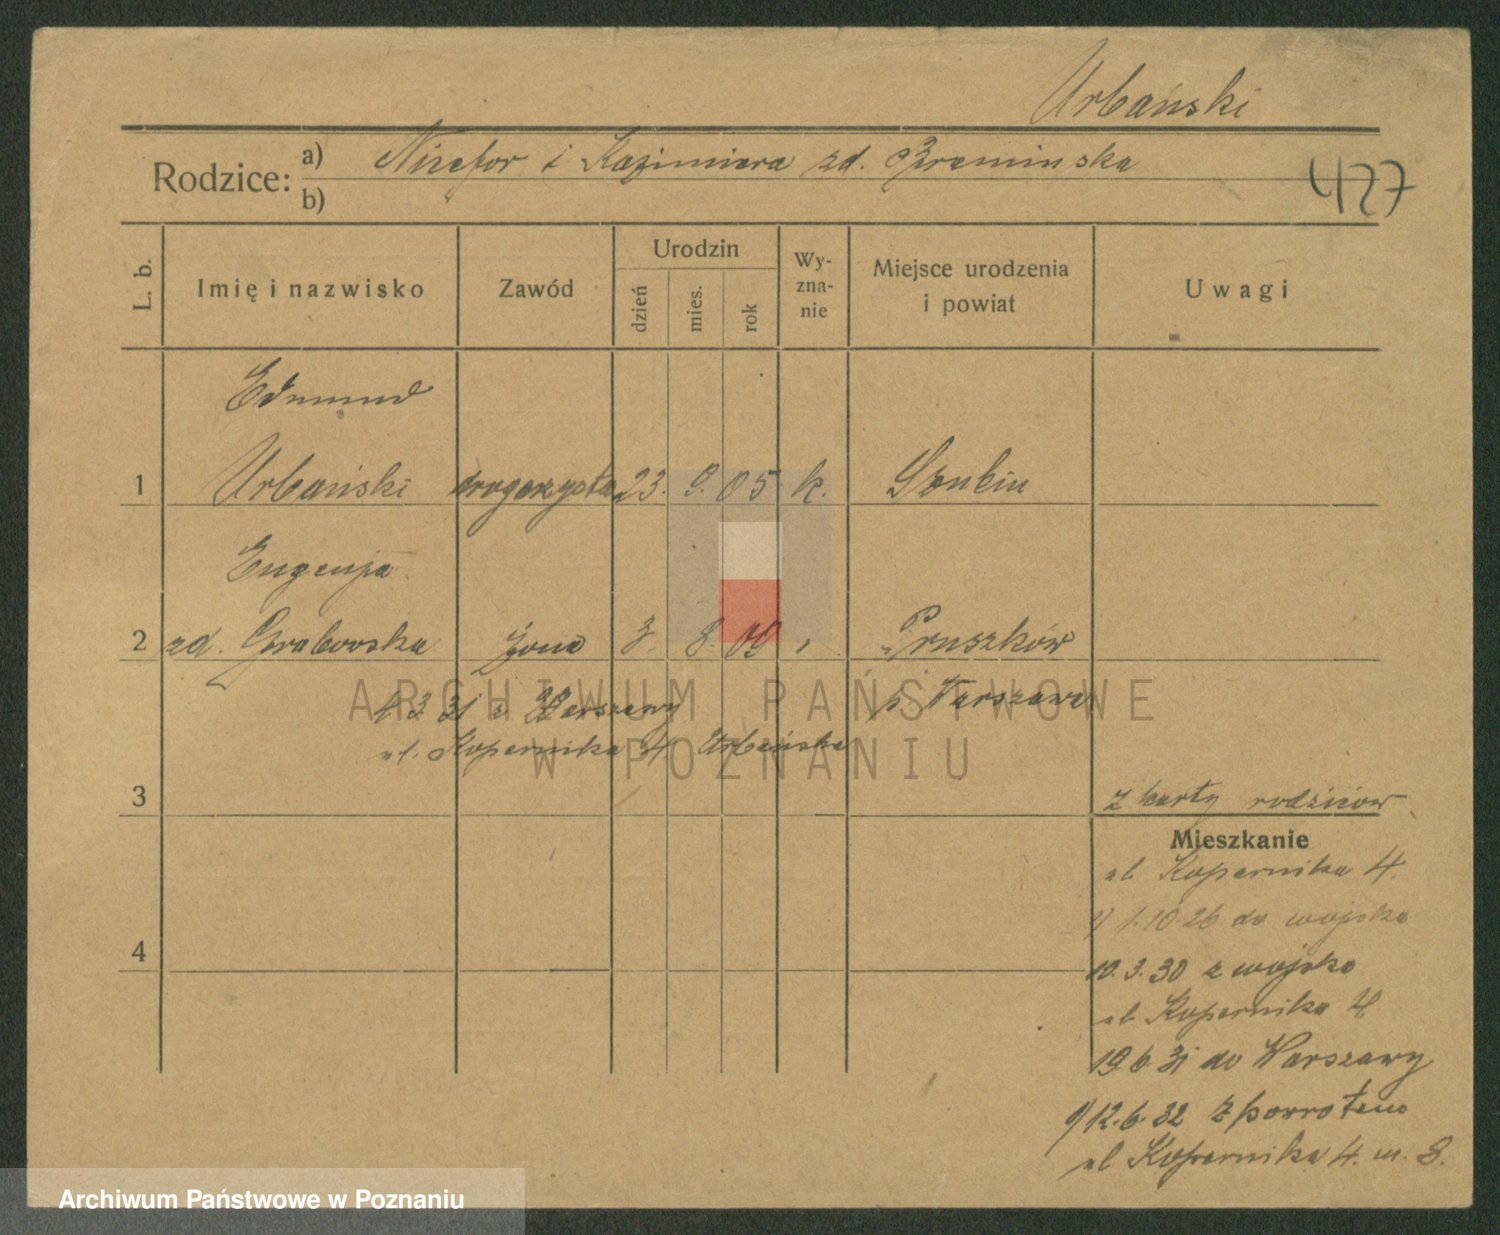 Urbański
Rodzice:
a) Nicefor i Kazimiera zd.
b)
427
L. b.
Imię i nazwisko
Zawód
Urodzin
dzień
mies.
rok
Wy-
zna-
nie
Miejsce urodzenia
i powiat
Uwagi
Edmund
1 Urbański drogerzysta 23. 9. 05 k. Szubin
Eugenja
2 zd. Grabowska żona 3. 8. 09 " Pruszków
3 31 z Warszawy p. Warszawa
ul. Kopernika 4. Urbańska
3
z karty rodziców
Mieszkanie
ul. Kopernika 4.
1.10.26 do wojska
4
10.3.30 z wojska
ul Kopernika 4
19 6 31 do Warszawy
12.6.32 z powrotem
ul Kopernika 4. m. 8.
ARCHIWUM PAŃSTWOWE
W POZNANIU
Archiwum Państwowe w Poznaniu